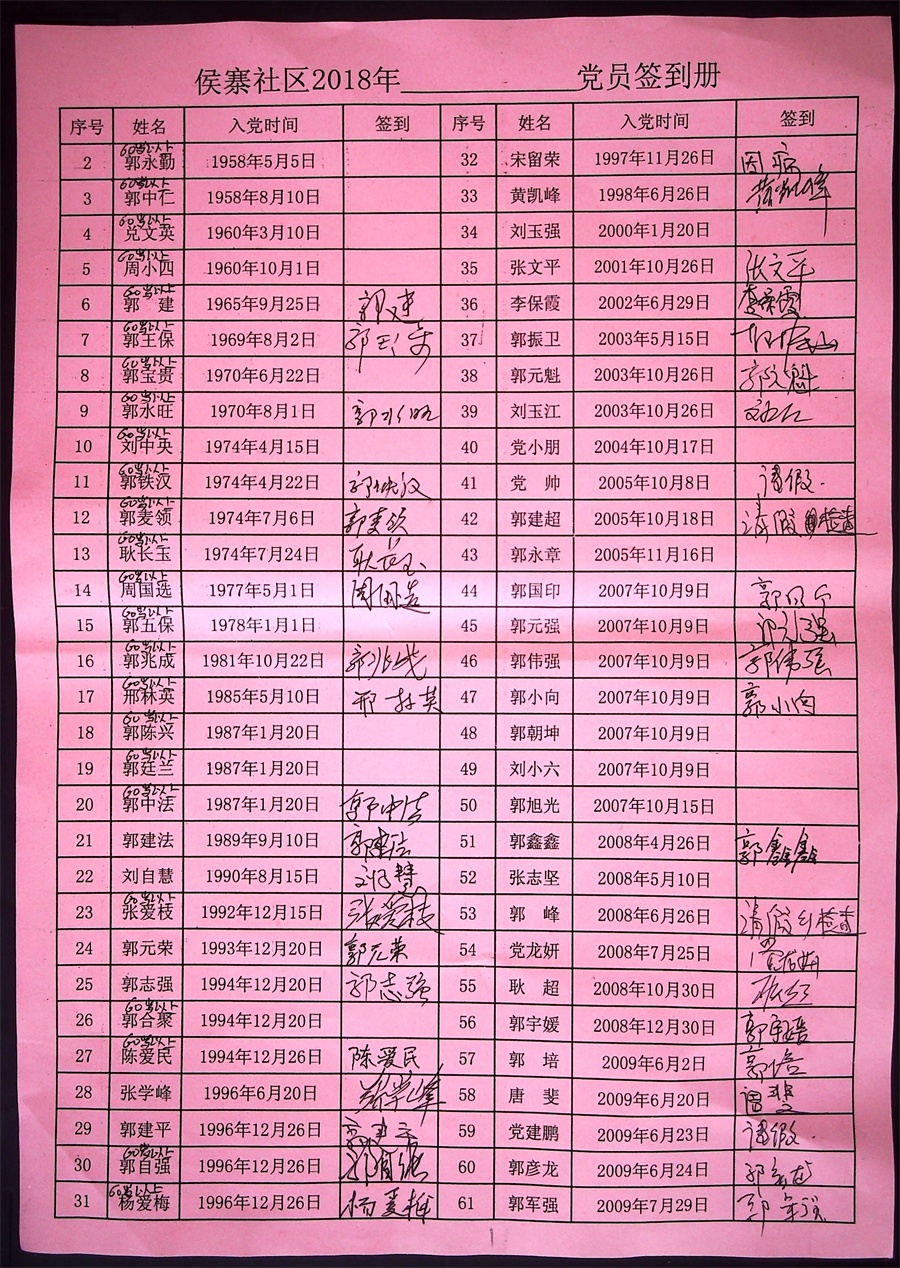 侯寨社区2018年____________党员签到册
序号 姓名 入党时间 签到 序号 姓名 入党时间 签到
60岁以上
2 郭永勤 1958年5月5日 32 宋留荣 1997年11月26日 因病
60岁以上
3 郭中仁 1958年8月10日 33 黄凯峰 1998年6月26日 黄凯峰
60岁以上
4 兑文英 1960年3月10日 34 刘玉强 2000年1月20日
60岁以上
5 周小四 1960年10月1日 35 张文平 2001年10月26日 张文平
60岁以上
6 郭 建 1965年9月25日 郭建 36 李保霞 2002年6月29日 李保霞
60岁以上
7 郭王保 1969年8月2日 郭王保 37 郭振卫 2003年5月15日
60岁以上
8 郭宝贵 1970年6月22日 38 郭元魁 2003年10月26日 郭元魁
60岁以上
9 郭永旺 1970年8月1日 郭永旺 39 刘玉江 2003年10月26日
60岁以上
10 刘中英 1974年4月15日 40 党小朋 2004年10月17日
60岁以上
11 郭铁汉 1974年4月22日 郭铁汉 41 党 帅 2005年10月8日 请假.
60岁以上
12 郭麦领 1974年7月6日 郭麦领 42 郭建超 2005年10月18日 请假 检查
60岁以上
13 耿长玉 1974年7月24日 耿长玉 43 郭永章 2005年11月16日
60岁以上
14 周国选 1977年5月1日 周国选 44 郭国印 2007年10月9日 郭国印
60岁以上
15 郭五保 1978年1月1日 45 郭元强 2007年10月9日 郭元强
60岁以上
16 郭兆成 1981年10月22日 郭兆成 46 郭伟强 2007年10月9日 郭伟强
60岁以上
17 邢林英 1985年5月10日 邢林英 47 郭小向 2007年10月9日 郭小向
60岁以上
18 郭陈兴 1987年1月20日 48 郭朝坤 2007年10月9日
60岁以上
19 郭廷兰 1987年1月20日 49 刘小六 2007年10月9日
60岁以上
20 郭中法 1987年1月20日 郭中法 50 郭旭光 2007年10月15日
21 郭建法 1989年9月10日 郭建法 51 郭鑫鑫 2008年4月26日 郭鑫鑫
22 刘自慧 1990年8月15日 刘自慧 52 张志坚 2008年5月10日
60岁以上
23 张爱枝 1992年12月15日 张爱枝 53 郭 峰 2008年6月26日 请假 检查
24 郭元荣 1993年12月20日 郭元荣 54 党龙妍 2008年7月25日
25 郭志强 1994年12月20日 郭志强 55 耿 超 2008年10月30日 耿超
60岁以上
26 郭合聚 1994年12月20日 56 郭宇媛 2008年12月30日 郭宇媛
60岁以上
27 陈爱民 1994年12月26日 陈爱民 57 郭 培 2009年6月2日 郭培
28 张学峰 1996年6月20日 张学峰 58 唐 斐 2009年6月20日 唐斐
29 郭建平 1996年12月26日 郭建平 59 党建鹏 2009年6月23日 请假.
60岁以上
30 郭自强 1996年12月26日 郭自强 60 郭彦龙 2009年6月24日 郭彦龙
60岁以上
31 杨爱梅 1996年12月26日 杨爱梅 61 郭军强 2009年7月29日 郭军强